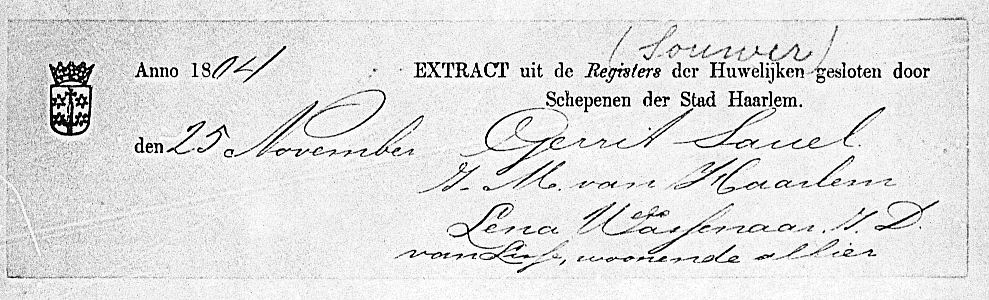 (Souwer)
Anno 1804 EXTRACT uit de Registers der Huwelijken gesloten door
Schepenen der Stad Haarlem.
den 25 November Gerrit Sauel.
J. M. van Haarlem
Lena Wassenaar, J. D.
van, woonende alhier